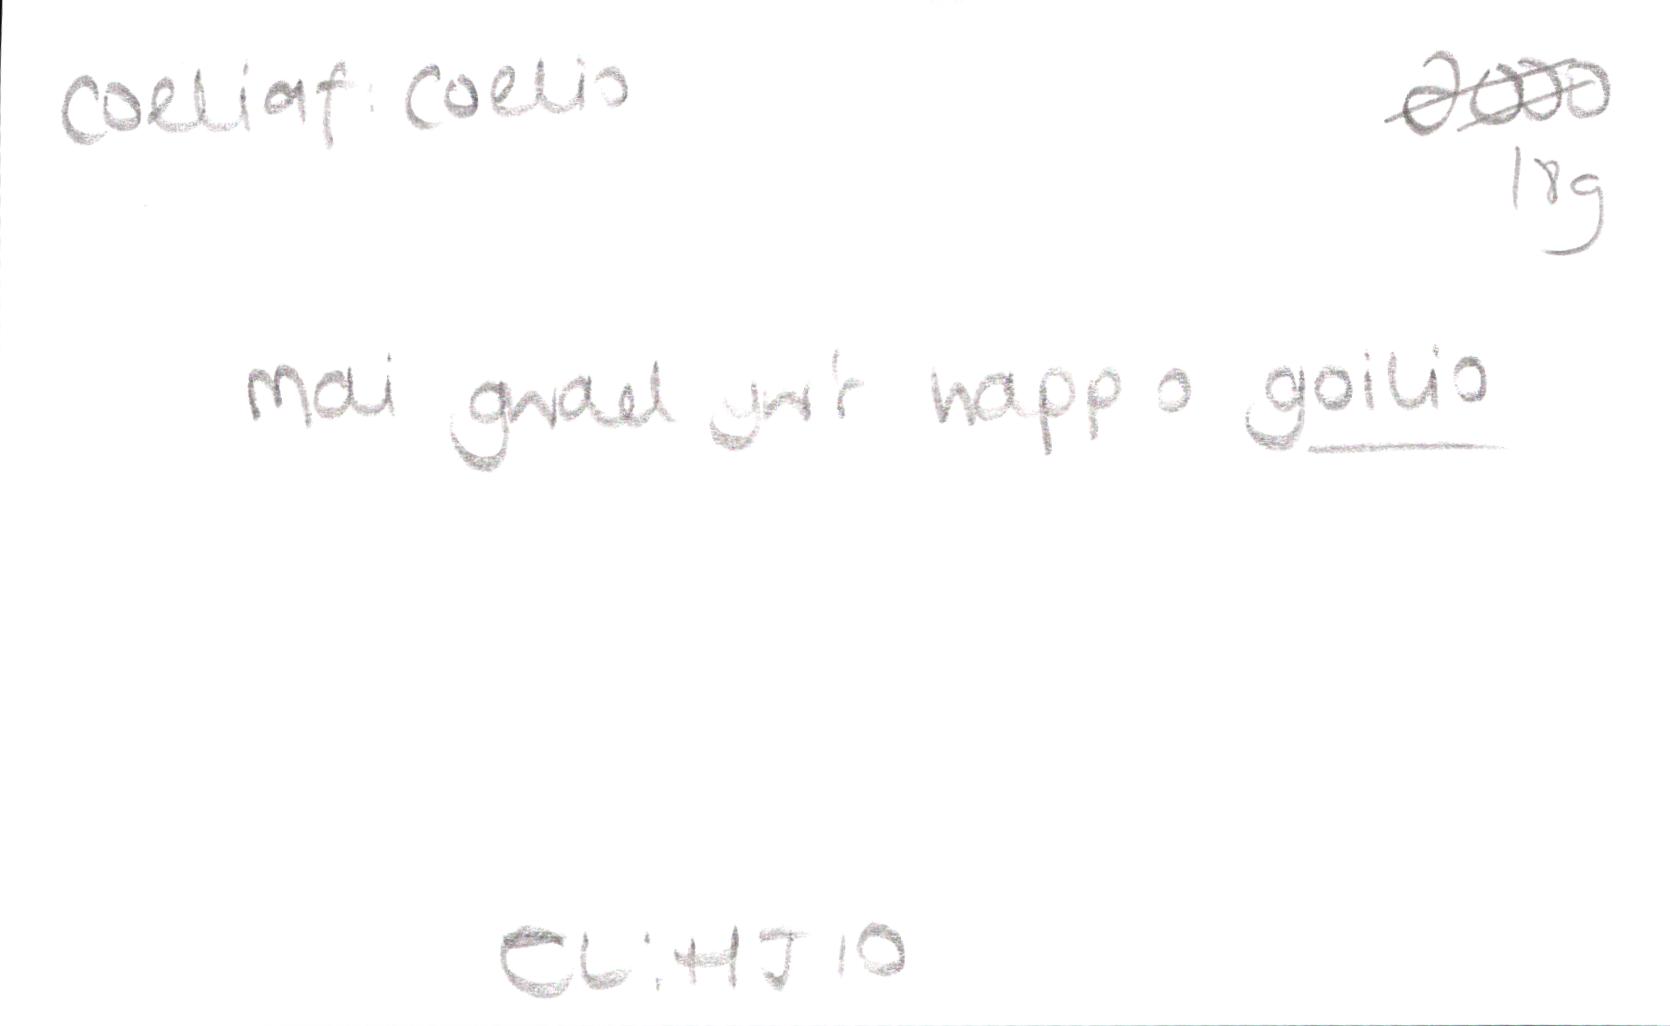 coeliaf: coelio
2000
18g
Mai gwael ynt happo goilio
CL:HJ10